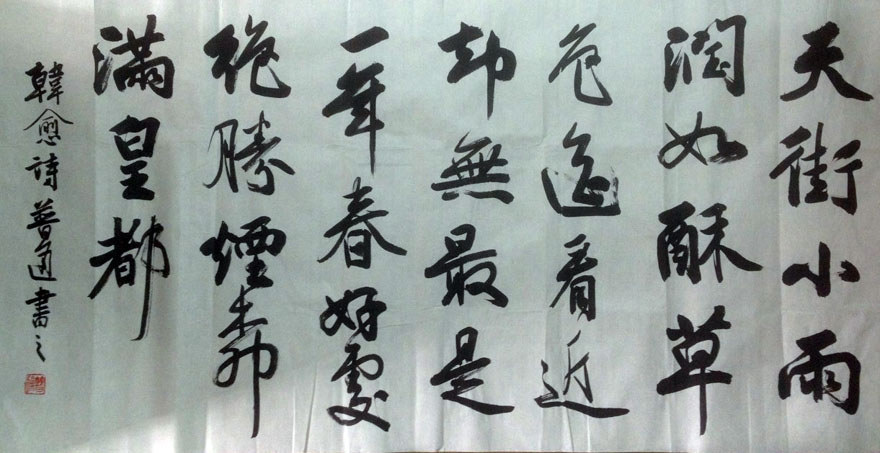 天街小雨
潤如酥草
色遥看近
却無最是
一年春好處
絶勝煙柳
滿皇都
韓愈詩普通書之